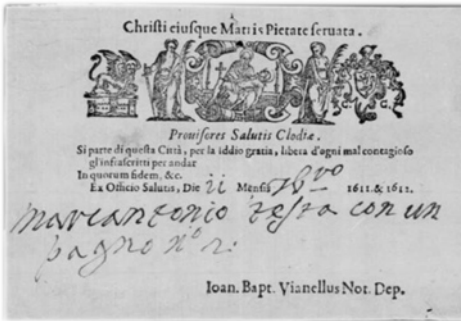 Christi eiusque Matris Pietate seruata.
Prouisores Salutis Clodiæ.
Si parte di questa Città, per la Iddio gratia, libera d'ogni mal contagioso
gl'infrascritti per andar
In quorum fidem, &c.
Ex Officio Salutis, Die ii Mensis 7bro 1611.& 1612.
marcantonio testa con un
pagno nº 2:
Ioan. Bapt. Vianellus Not. Dep.